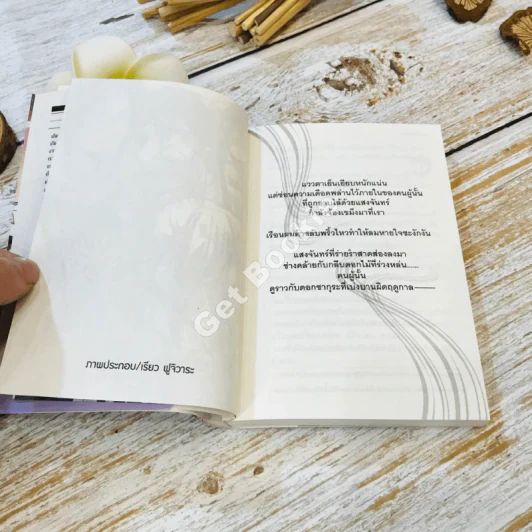 ภาพประกอบ/เรียว ฟูจิวาระ
แววตาเย็นเยียบหนักแน่น
แต่ซ่อนความเดือดพล่านไว้ภายในของคนผู้นั้น
ที่ถูกย้อมไล้ด้วยแสงจันทร์
กำลังจ้องเขม็งมาที่เรา
เรือนผมดำขลับพริ้วไหวทำให้ลมหายใจชะงักงัน
แสงจันทร์ที่ร่ายรำสาดส่องลงมา
ช่างคล้ายกับกลีบดอกไม้ที่ร่วงหล่น.....
คนผู้นั้น
ดูราวกับดอกซากุระที่เบ่งบานผิดฤดูกาล——
Get Books